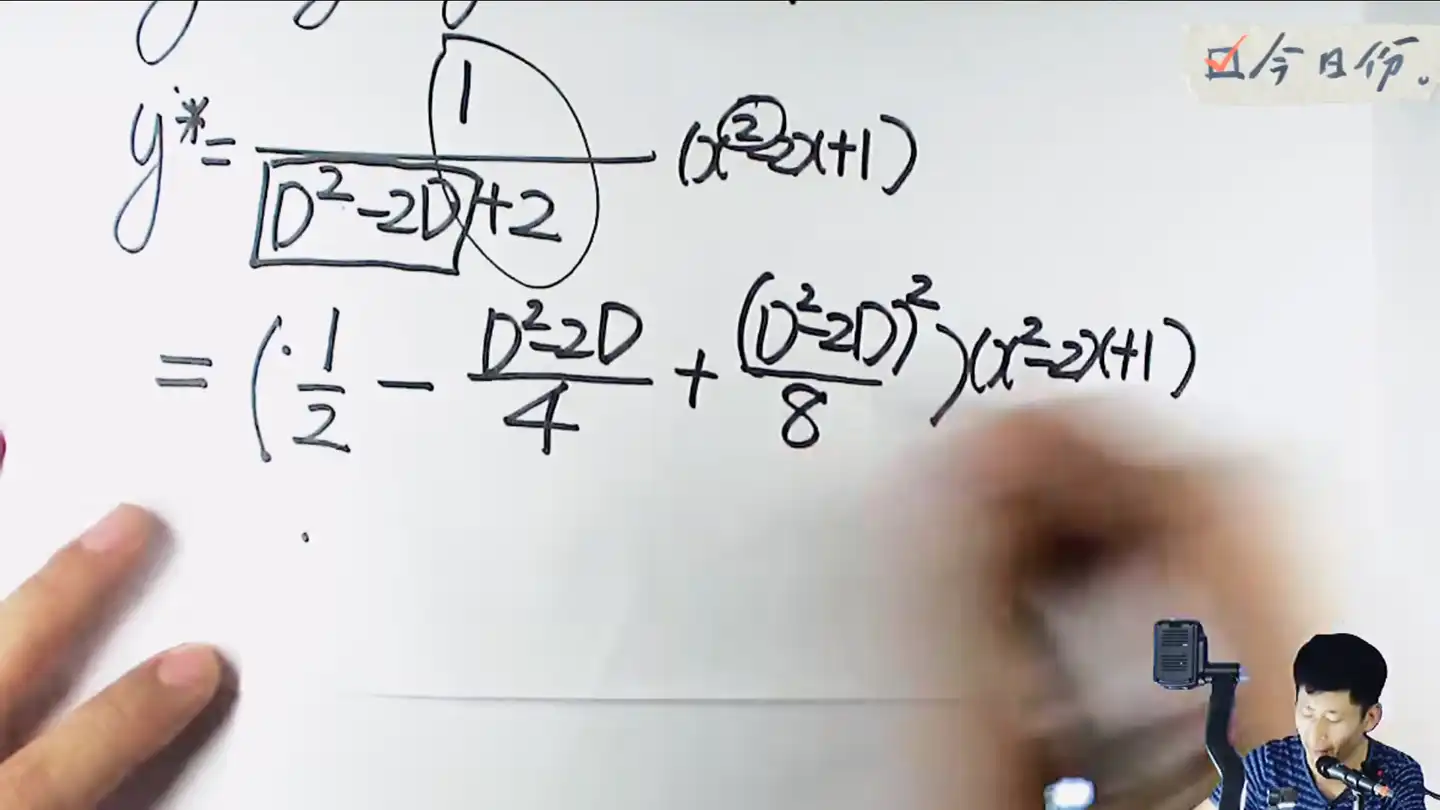 今日份。
y* = 1/(D²-2D+2) (x²-2x+1)
= (1/2 - (D²-2D)/4 + (D²-2D)²/8)(x²-2x+1)